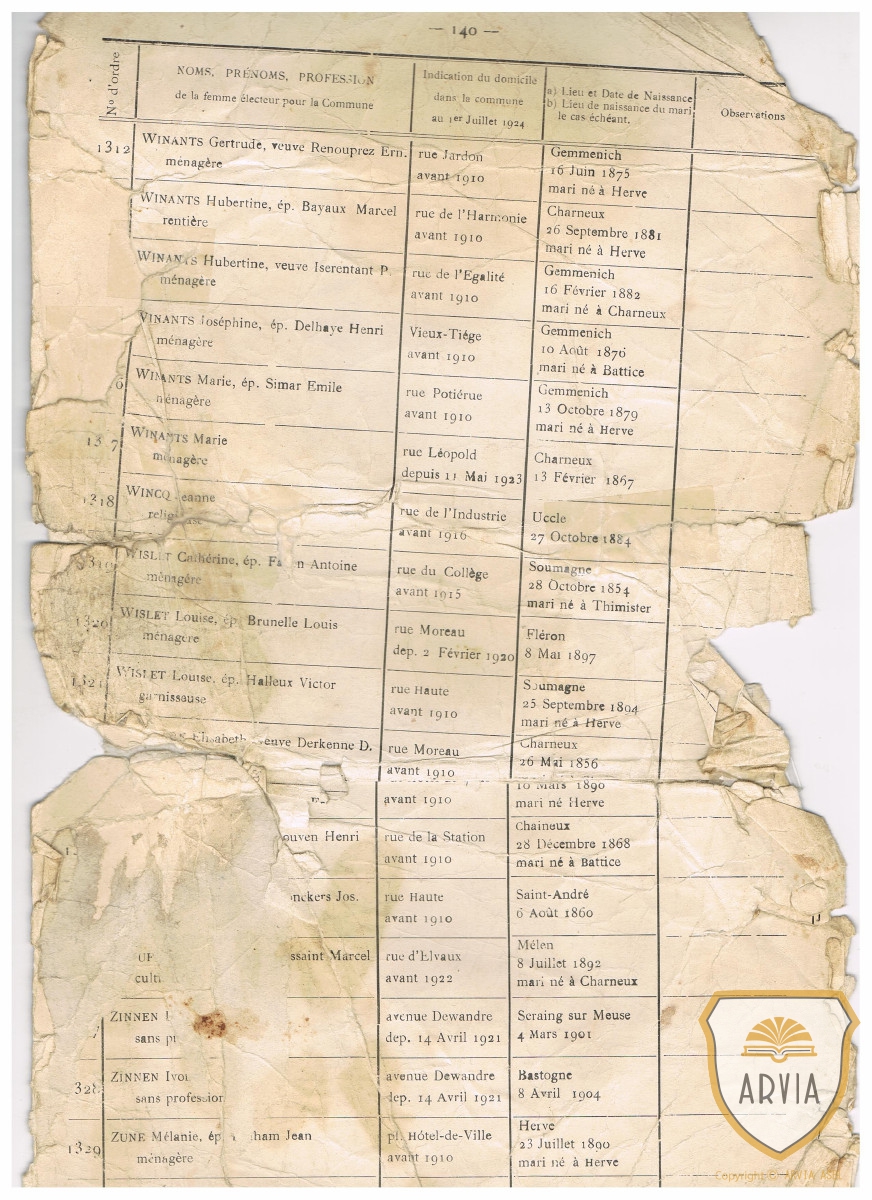 — 140 —
N° d'ordre
NOMS, PRÉNOMS, PROFESSION
de la femme électeur pour la Commune
Indication du domicile
dans la commune
au 1er Juillet 1924
a) Lieu et Date de Naissance
b) Lieu de naissance du mari
le cas échéant.
Observations
1312 WINANTS Gertrude, veuve Renouprez Ern. rue Jardon Gemmenich
ménagère avant 1910 16 Juin 1875
mari né à Herve
WINANTS Hubertine, ép. Bayaux Marcel rue de l'Harmonie Charneux
rentière avant 1910 26 Septembre 1881
mari né à Herve
WINANTS Hubertine, veuve Iserentant P. rue de l'Egalité Gemmenich
ménagère avant 1910 16 Février 1882
mari né à Charneux
WINANTS Joséphine, ép. Delhaye Henri Vieux-Tiége Gemmenich
ménagère avant 1910 10 Août 1876
mari né à Battice
6 WINANTS Marie, ép. Simar Emile rue Potiérue Gemmenich
ménagère avant 1910 13 Octobre 1879
mari né à Herve
13 7 WINANTS Marie rue Léopold Charneux
ménagère depuis 11 Mai 1923 13 Février 1867
1318 WINCQ Jeanne rue de l'Industrie Uccle
avant 1916 27 Octobre 1884
WISLET Cathérine, ép. Antoine rue du Collège Soumagne
ménagère avant 1915 28 Octobre 1854
mari né à Thimister
1320 WISLET Louise, ép. Brunelle Louis rue Moreau Fléron
ménagère dep. 2 Février 1920 8 Mai 1897
1321 WISLET Louise, ép. Halleux Victor rue Haute Soumagne
garnisseuse avant 1910 25 Septembre 1894
mari né à Herve
Elisabeth veuve Derkenne D. rue Moreau Charneux
avant 1910 26 Mai 1856
10 Mars 1890
avant 1910 mari né Herve
ouven Henri rue de la Station Chaineux
avant 1910 28 Décembre 1868
mari né à Battice
nckers Jos. rue Haute Saint-André
avant 1910 6 Août 1860
ssaint Marcel rue d'Elvaux Mélen
culti avant 1922 8 Juillet 1892
mari né à Charneux
ZINNEN avenue Dewandre Seraing sur Meuse
sans dep. 14 Avril 1921 4 Mars 1901
328 ZINNEN avenue Dewandre Bastogne
sans profession dep. 14 Avril 1921 8 Avril 1904
1329 ZUNE Mélanie, ép. ham Jean pl. Hôtel-de-Ville Herve
ménagère avant 1910 23 Juillet 1890
mari né à Herve
ARVIA
Copyright © ARVIA ASBL